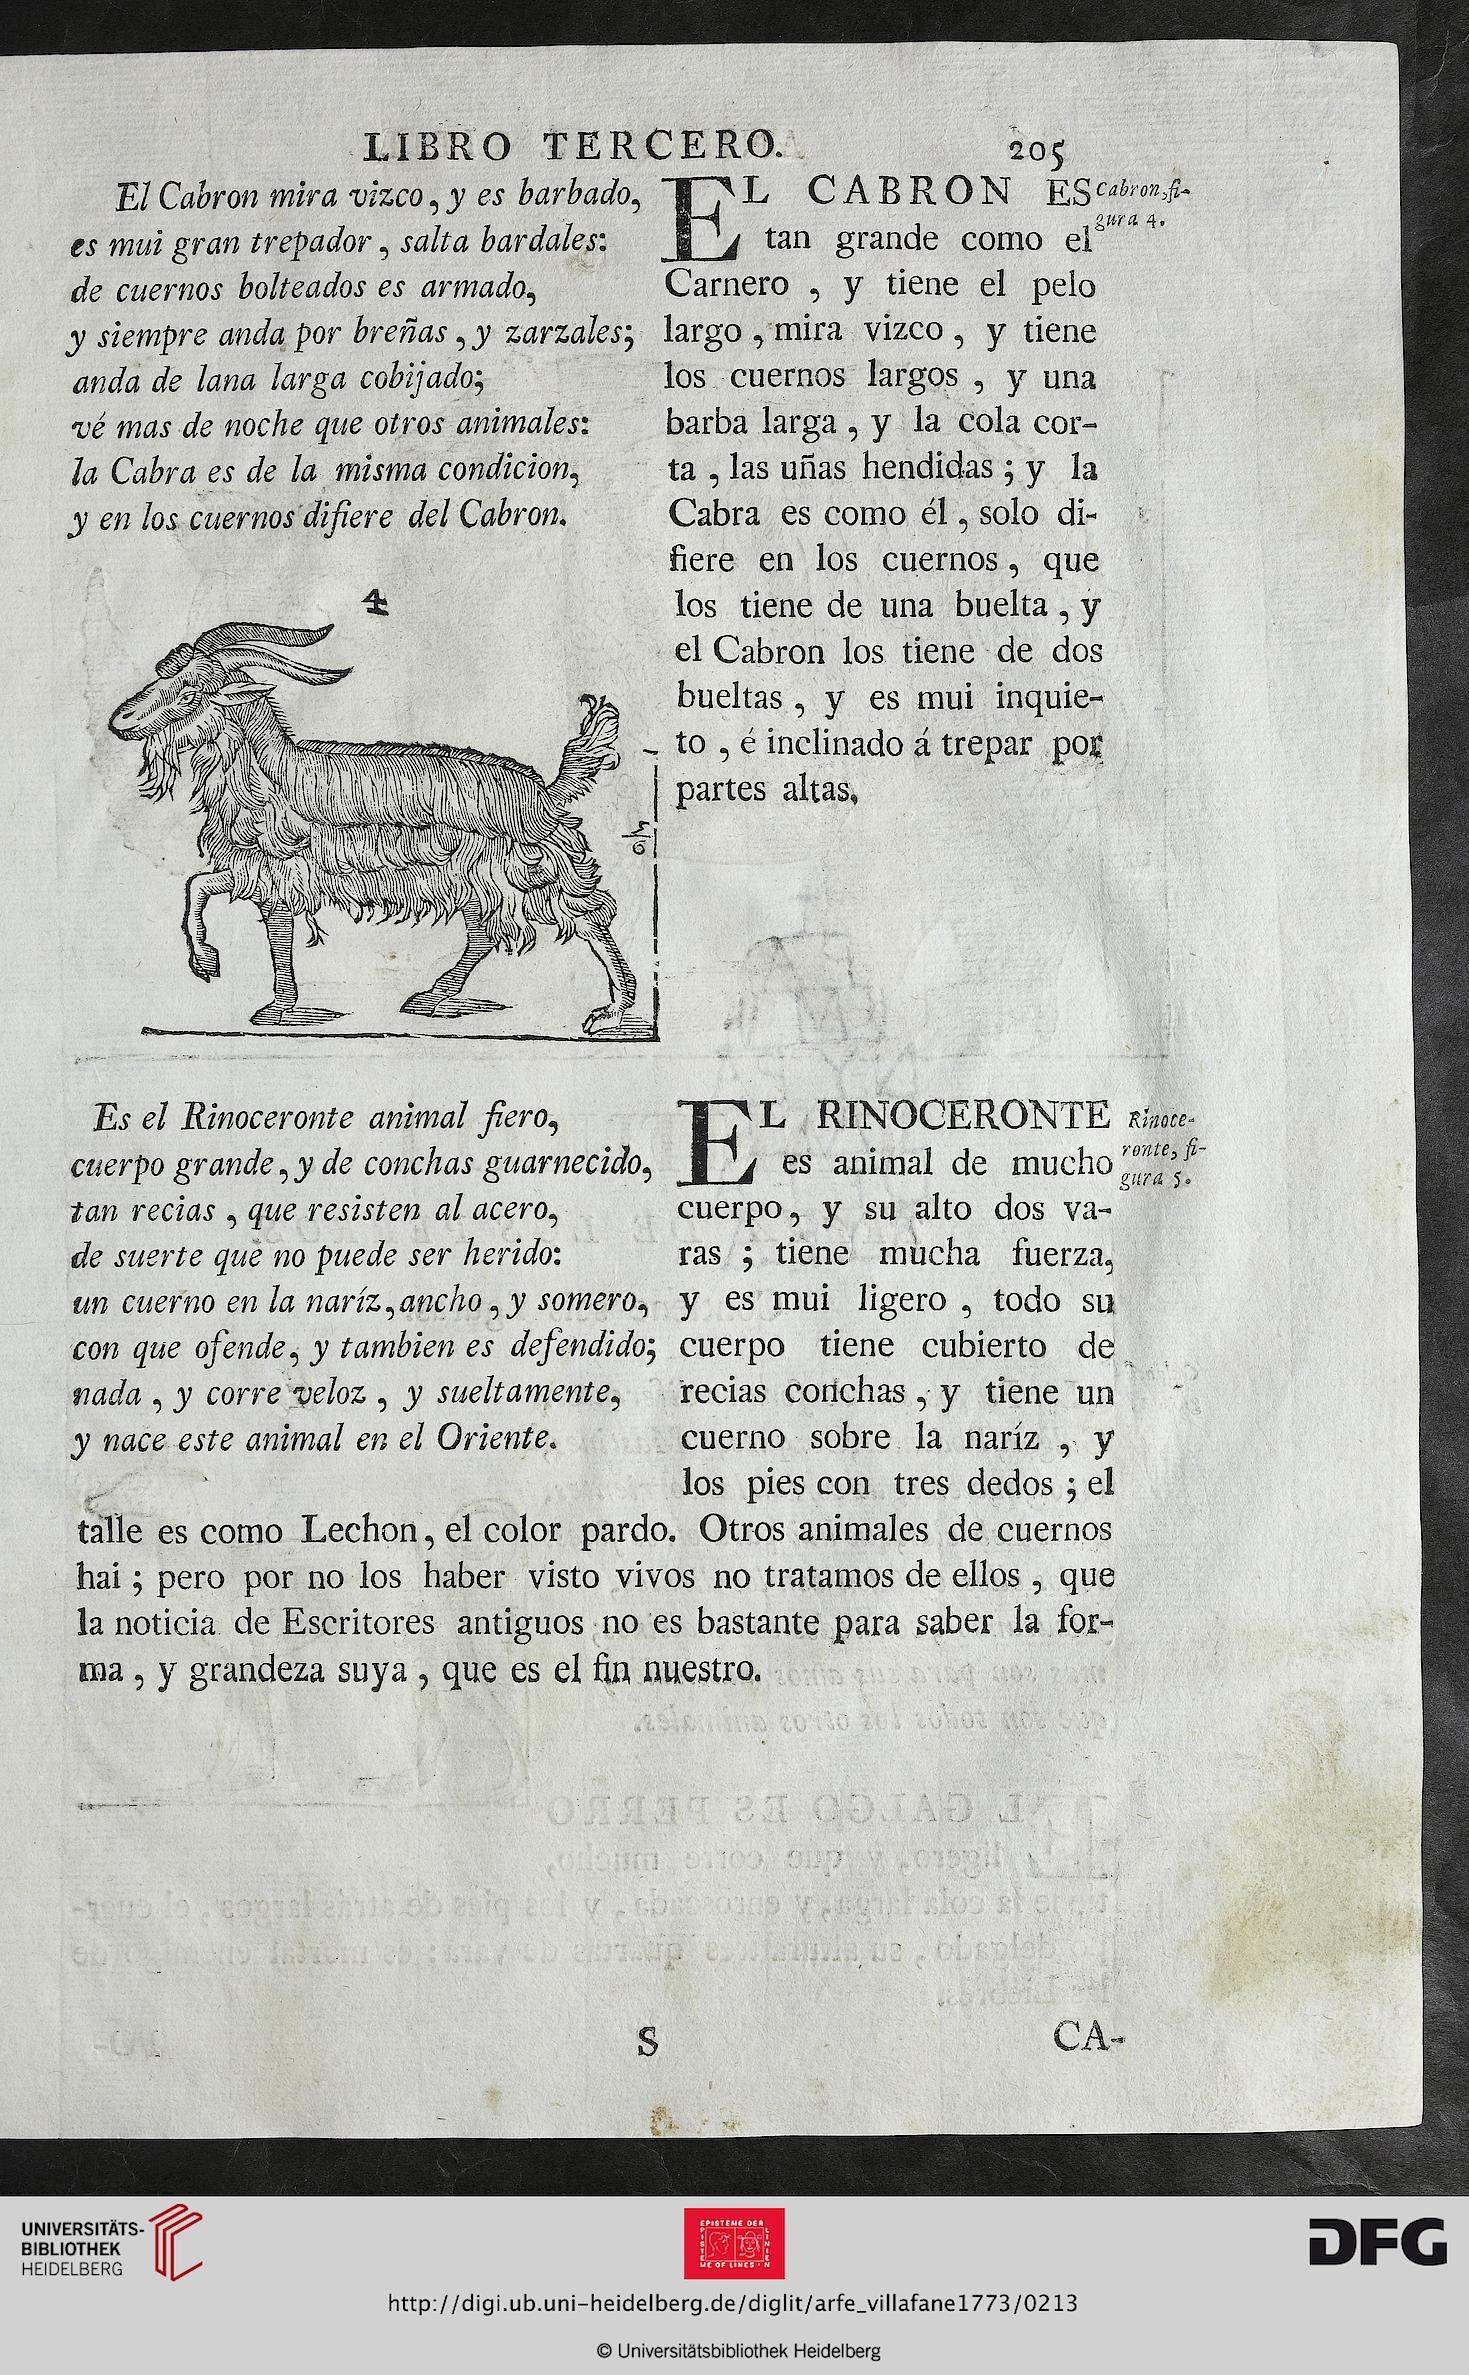 LIBRO TERCERO. 205
El Cabron mira vizco, y es barbado,
es mui gran trepador, salta bardales:
de cuernos bolteados es armado,
y siempre anda por breñas, y zarzales;
anda de lana larga cobijado;
vé mas de noche que otros animales:
la Cabra es de la misma condicion,
y en los cuernos difiere del Cabron.
4
EL CABRON ES
tan grande como el
Carnero, y tiene el pelo
largo, mira vizco, y tiene
los cuernos largos, y una
barba larga, y la cola cor-
ta, las uñas hendidas; y la
Cabra es como él, solo di-
fiere en los cuernos, que
los tiene de una buelta, y
el Cabron los tiene de dos
bueltas, y es mui inquie-
to, é inclinado á trepar por
partes altas.
Cabron, fi-
gura 4.
Es el Rinoceronte animal fiero,
cuerpo grande, y de conchas guarnecido,
tan recias, que resisten al acero,
de suerte que no puede ser herido:
un cuerno en la naríz, ancho, y somero,
con que ofende, y tambien es defendido;
nada, y corre veloz, y sueltamente,
y nace este animal en el Oriente.
EL RINOCERONTE
es animal de mucho
cuerpo, y su alto dos va-
ras; tiene mucha fuerza,
y es mui ligero, todo su
cuerpo tiene cubierto de
recias conchas, y tiene un
cuerno sobre la naríz, y
los pies con tres dedos; el
talle es como Lechon, el color pardo. Otros animales de cuernos
hai; pero por no los haber visto vivos no tratamos de ellos, que
la noticia de Escritores antiguos no es bastante para saber la for-
ma, y grandeza suya, que es el fin nuestro.
Rinoce-
ronte, fi-
gura 5.
S CA-
UNIVERSITÄTS-
BIBLIOTHEK
HEIDELBERG
EPISTEME DER
LINIEN
DFG
http://digi.ub.uni-heidelberg.de/diglit/arfe_villafane1773/0213
© Universitätsbibliothek Heidelberg